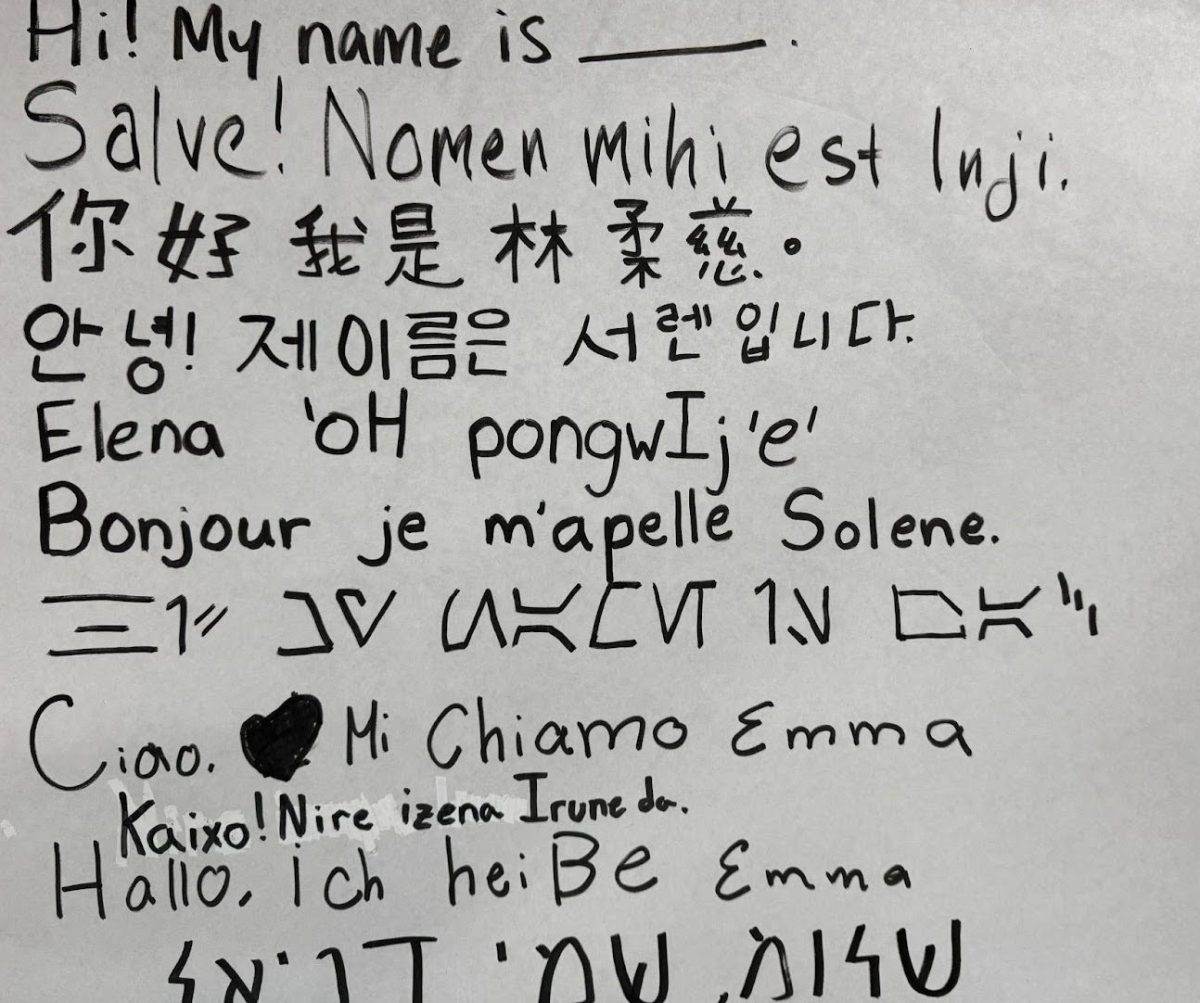 Hi! My name is ____.
Salve! Nomen mihi est Inji.
你好 我是 林柔慈。
안녕! 제이름은 서렌입니다.
Elena 'oH pongwIj'e'
Bonjour je m'apelle Solene.
Ciao. Mi Chiamo Emma
Kaixo! Nire izena Irune da.
Hallo, ich heiße Emma
שלום, שמי